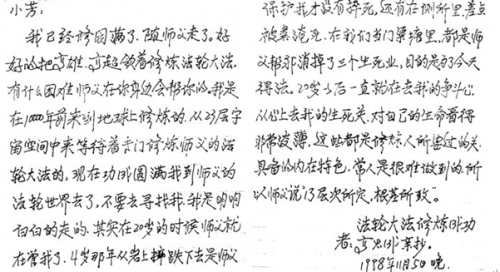 小芳:
我已经修圆满了,随师父走了。好
好的把高雄、高超领着修炼法轮大法,
有什么困难师父在你身边会帮你的。我是
在1000年前来到地球上修炼的,从23层宇
宙空间中来等待着专门修炼师父的法
轮大法的,现在功成圆满我到师父的
法轮世界去了,不要去寻找我,我是明明
白白的走的,其实在20岁的时候师父就
在管我了,4岁那年从岩上摔跌下去是师父
保护我才没有摔死,还有在侧所里差点
被粪淹死,在我们当门粪塘里,都是师
父帮我消掉了三个生死业,目的是为今天
得法。20岁以后一直就在去我的争斗心
从心上去我的生死关,对自己的生命看得
非常淡薄,这些都是修炼人所过的关
具备的内在特色,常人是很难做到的,所
以师父说“层次所定,根基所致”。
法轮大法修炼成功
者:高
1998年11月5日晚.